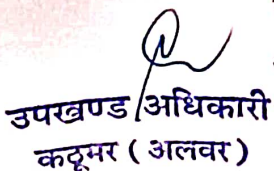 उपखण्ड अधिकारी
कठूमर ( अलवर )